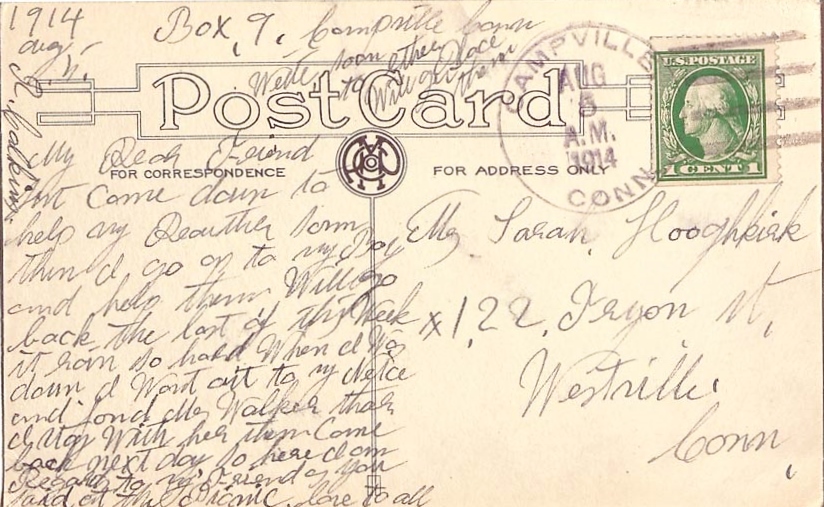 1914
Aug 5,
Box, 9, Campville Conn
Write soon
to other
Will place
Post Card
CAMPVILLE
AUG
5
A.M.
1914
CONN.
U.S. POSTAGE
1 CENT 1
FOR CORRESPONDENCE
FOR ADDRESS ONLY
My Dear Friend
come down to
help my Daughter some
then I go on to my Boy
and help them Will go
back the last of this Week
it rain so hard When I Was
down I Want out to my Neice
and fond Mrs Walker thar
I Stay With her then Come
back next day so here I am
Regards to my Friend as you
said at the Picnic. love to all
Mrs Sarah, Hooghkirk
x 122, Fryon St,
Westville.
Conn,